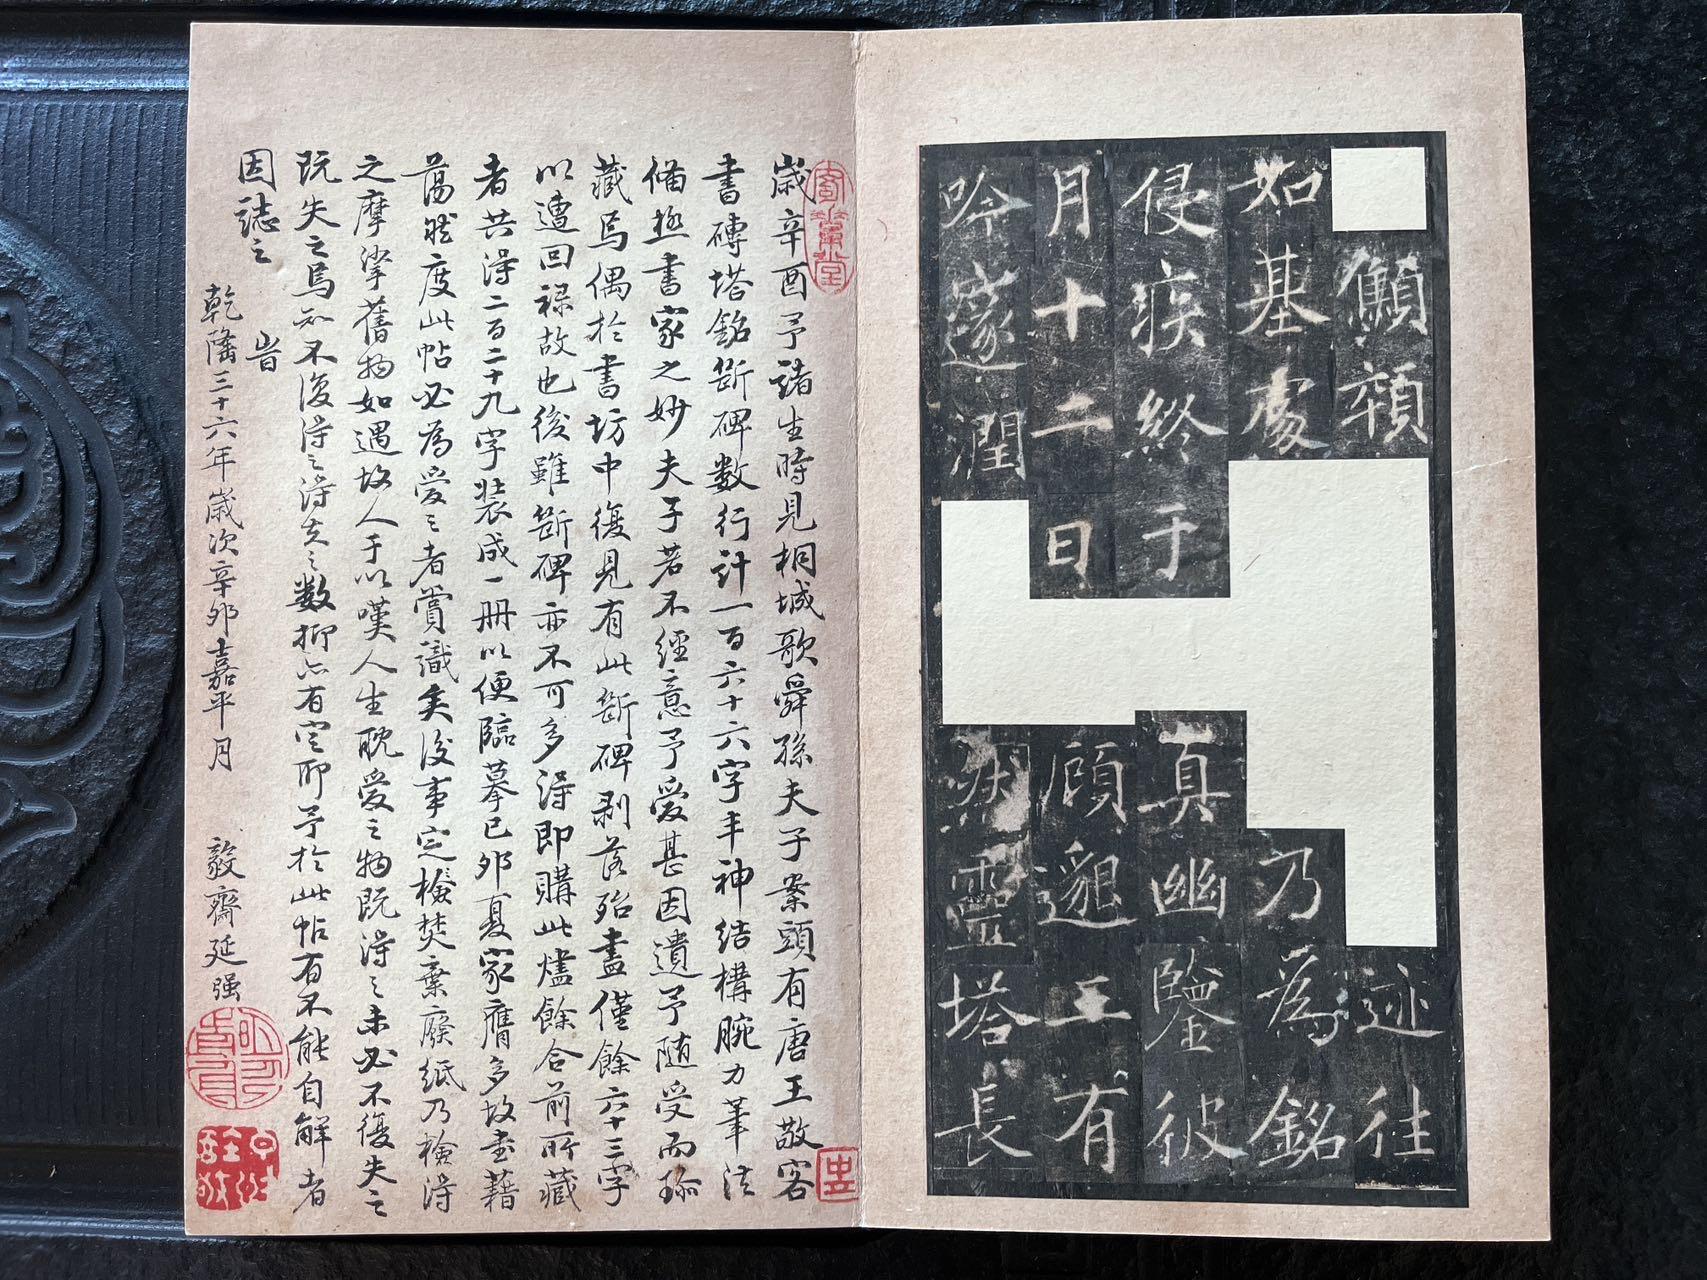 儩纇
迹往
如基處
乃為銘
侵疾終于
真幽鑒彼
月十二日
顧邈工有
吟邃潤
哉靈塔長
歲辛酉予諸生時見桐城歌舜孫夫子案頭有唐王敬客
書磚塔銘斷碑数行計一百六十六字丰神結構腕力筆法
備極書家之妙夫子若不經意予愛甚因遺予随受而珎
藏焉偶於書坊中復見有此斷碑剥落殆盡僅餘六十三字
以遭回禄故也後雖斷碑亦不可多淂即購此燼餘合前所藏
者共淂二百二十九字裝成一冊以便臨摹已夘夏家膺多故書籍
蕩然度此帖必為愛之者賞識矣後事定檢焚棄廢紙乃檢淂
之摩挲舊物如遇故人于以嘆人生耽愛之物既淂之未必不復失之
既失之焉知不復淂之淂失之数抑亦有定耶予於此帖有不能自解者
因誌之
旹
乾隆三十六年歲次辛夘嘉平月
毅齋延强